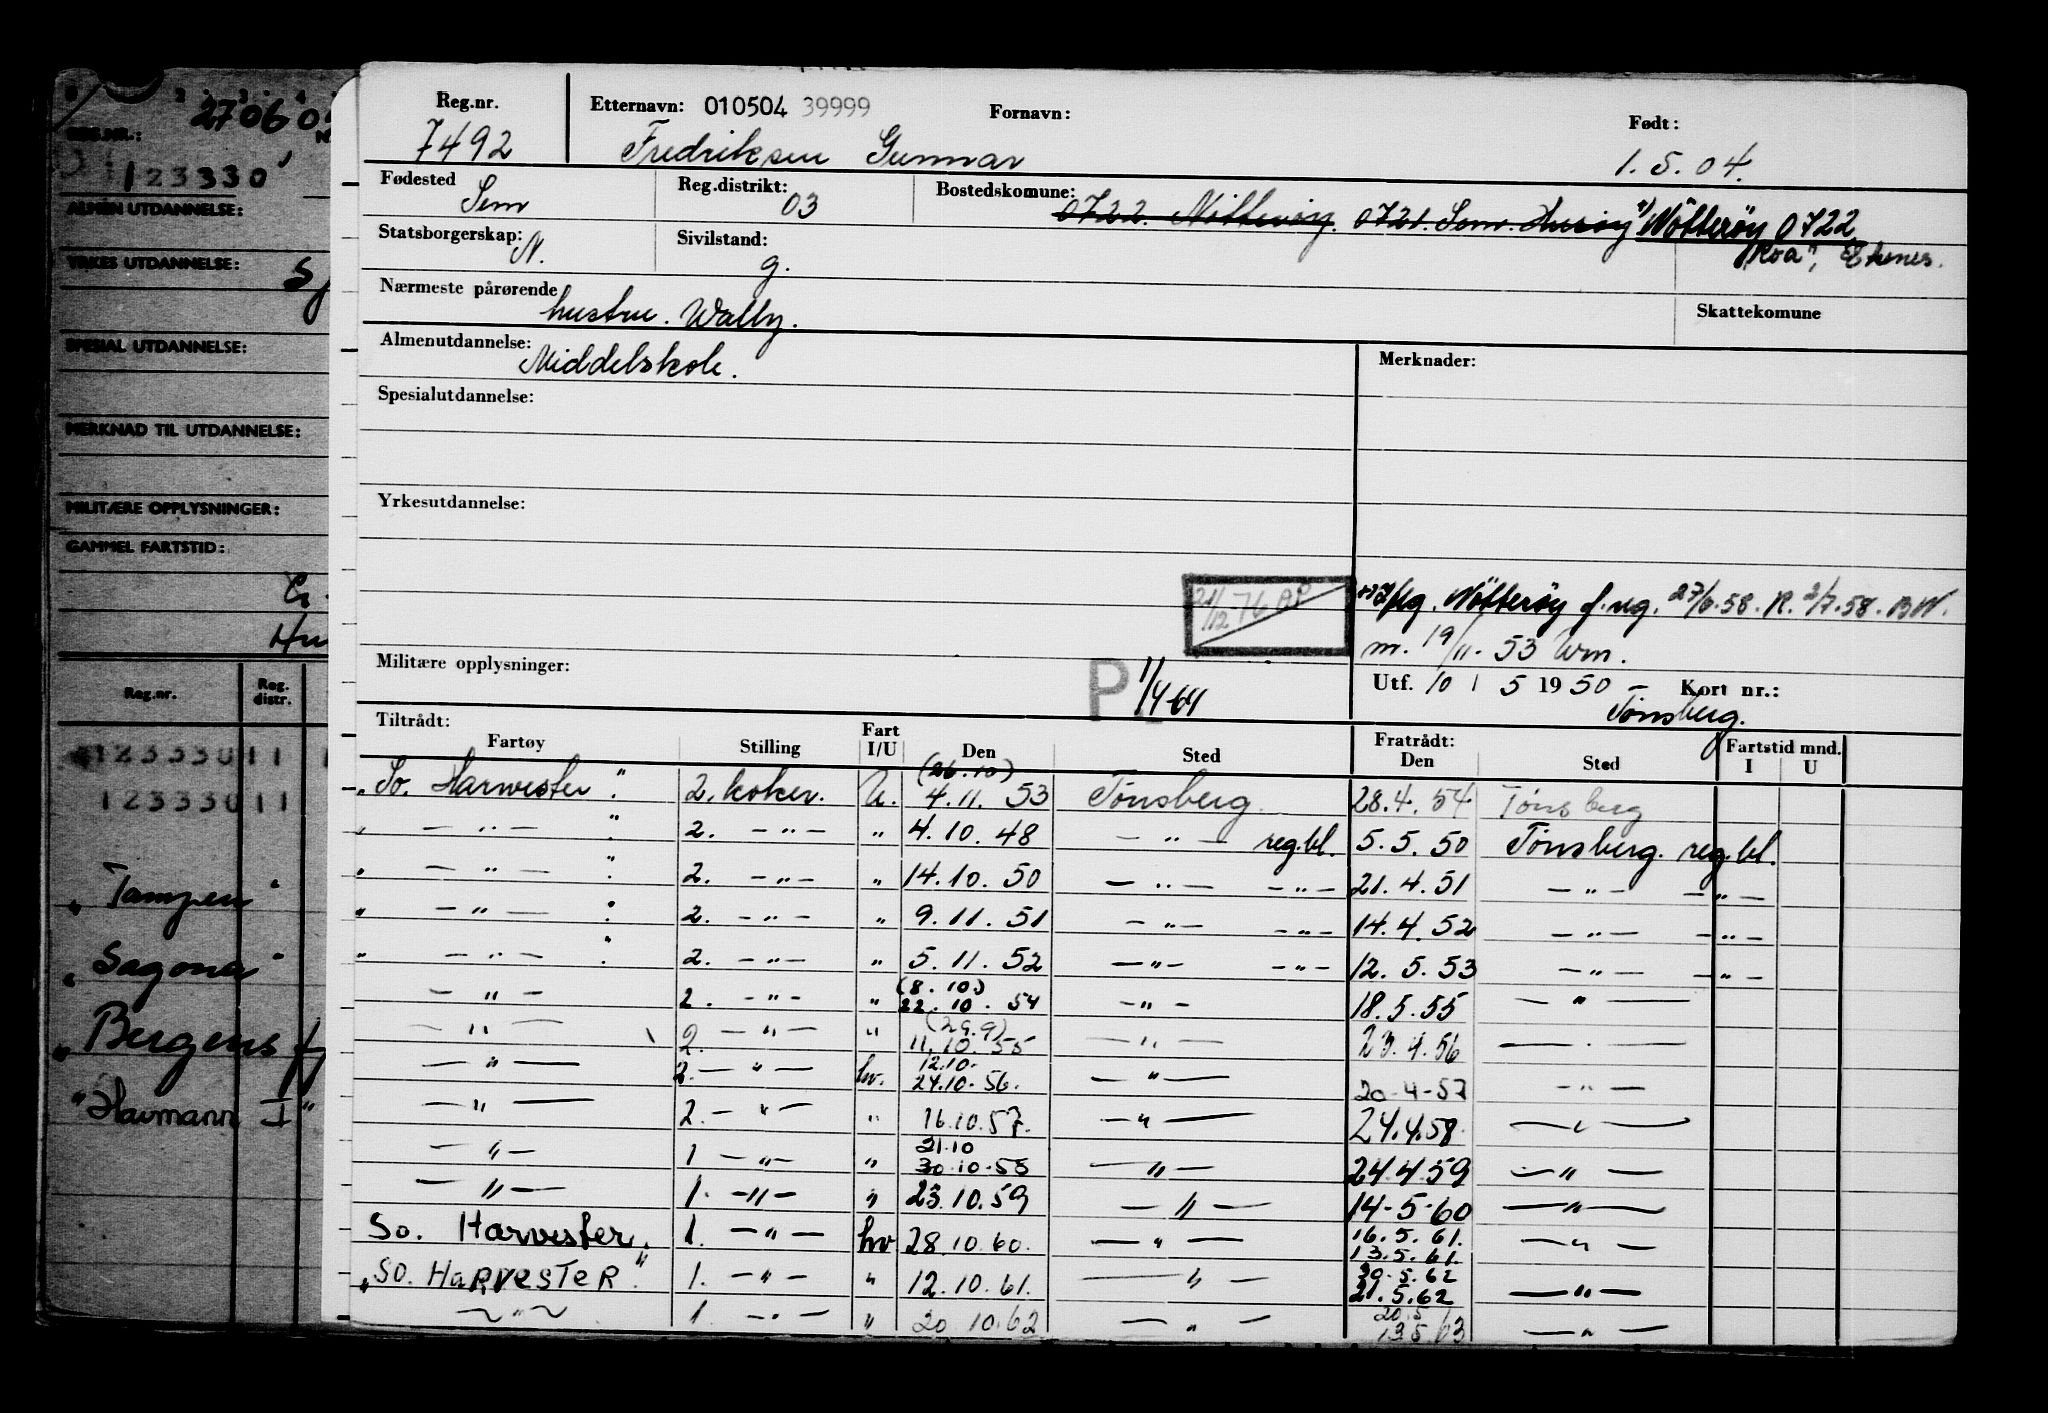 270604
REG.NR.:
123330
ALMEN UTDANNELSE:
YRKES UTDANNELSE:
SPESIAL UTDANNELSE:
MERKNAD TIL UTDANNELSE:
MILITÆRE OPPLYSNINGER:
GAMMEL FARTSTID:
Reg.nr. Reg. distr.
123330 11
123330 11
„Tampen“
„Sagona“
„Bergens
"Havmann I"
Reg.nr. Etternavn: 010504 39999 Fornavn: Født:
7492 Fredriksen Gunnar 1.5.04.
Fødested Sem Reg.distrikt: 03 Bostedskomune: 0722 Nötteröy. 0721. Sem. Husöy Nötterøy 0722
Statsborgerskap: N. Sivilstand: g. "Roa", Ekenes.
Nærmeste pårørende hustru. Wally. Skattekomune
Almenutdannelse: Middelskole. Merknader:
Spesialutdannelse:
Yrkesutdannelse:
21/12 76
flg. Nøtterøy f. reg. 27/6.58. R. 2/7.58. BW.
m. 19/11. 53 Wm.
Militære opplysninger: P 1/4 64 Utf. 10 / 5 1950 - Kort nr.:
Tønsberg.
Tiltrådt: Fartøy Stilling Fart I/U Den Sted Fratrådt: Den Sted Fartstid mnd. I U
(26.10)
„So. Harvester“ 2. koker. U. 4.11. 53 Tønsberg. 28.4.54 Tønsberg
„ — „ — “ 2. — „ — „ 4.10.48 — „ — reg.bl. 5.5.50 Tønsberg. reg.bl.
„ — „ — “ 2. — „ — „ 14.10.50 — „ — — „ — 21.4.51 — „ — — „ —
„ — „ — “ 2. — „ — „ 9.11.51 — „ — — „ — 14.4.52 — „ — — „ —
„ — „ — “ 2. — „ — „ 5.11.52 — „ — — „ — 12.5.53 — „ — — „ —
(8.10)
— „ — 2. — „ — „ 22.10.54 — „ — 18.5.55 — „ —
(29.9)
— „ — 2. — „ — „ 11.10.55 — „ — 23.4.56 — „ —
12.10.
— „ — 2. — „ — hv. 24.10.56. — „ — 20-4-57 — „ —
— „ — 2. — „ — „ 16.10.57. — „ — 24.4.58. — „ —
21.10
— „ — 1 — „ — „ 30.10.58 — „ — 24.4.59 — „ —
— „ — 1. — „ — „ 23.10.59 — „ — 14-5-60 — „ —
16.5.61.
So. Harvester. 1. — „ — hv 28.10.60. — „ — 13.5.61. — „ —
20.5.62
„SO. HARVESTER“ 1. — „ — „ 12.10.61. — „ — 21.5.62 — „ —
20.5
— „ — 1. — „ — „ 20.10.62 — „ — 13.5.63 — „ —